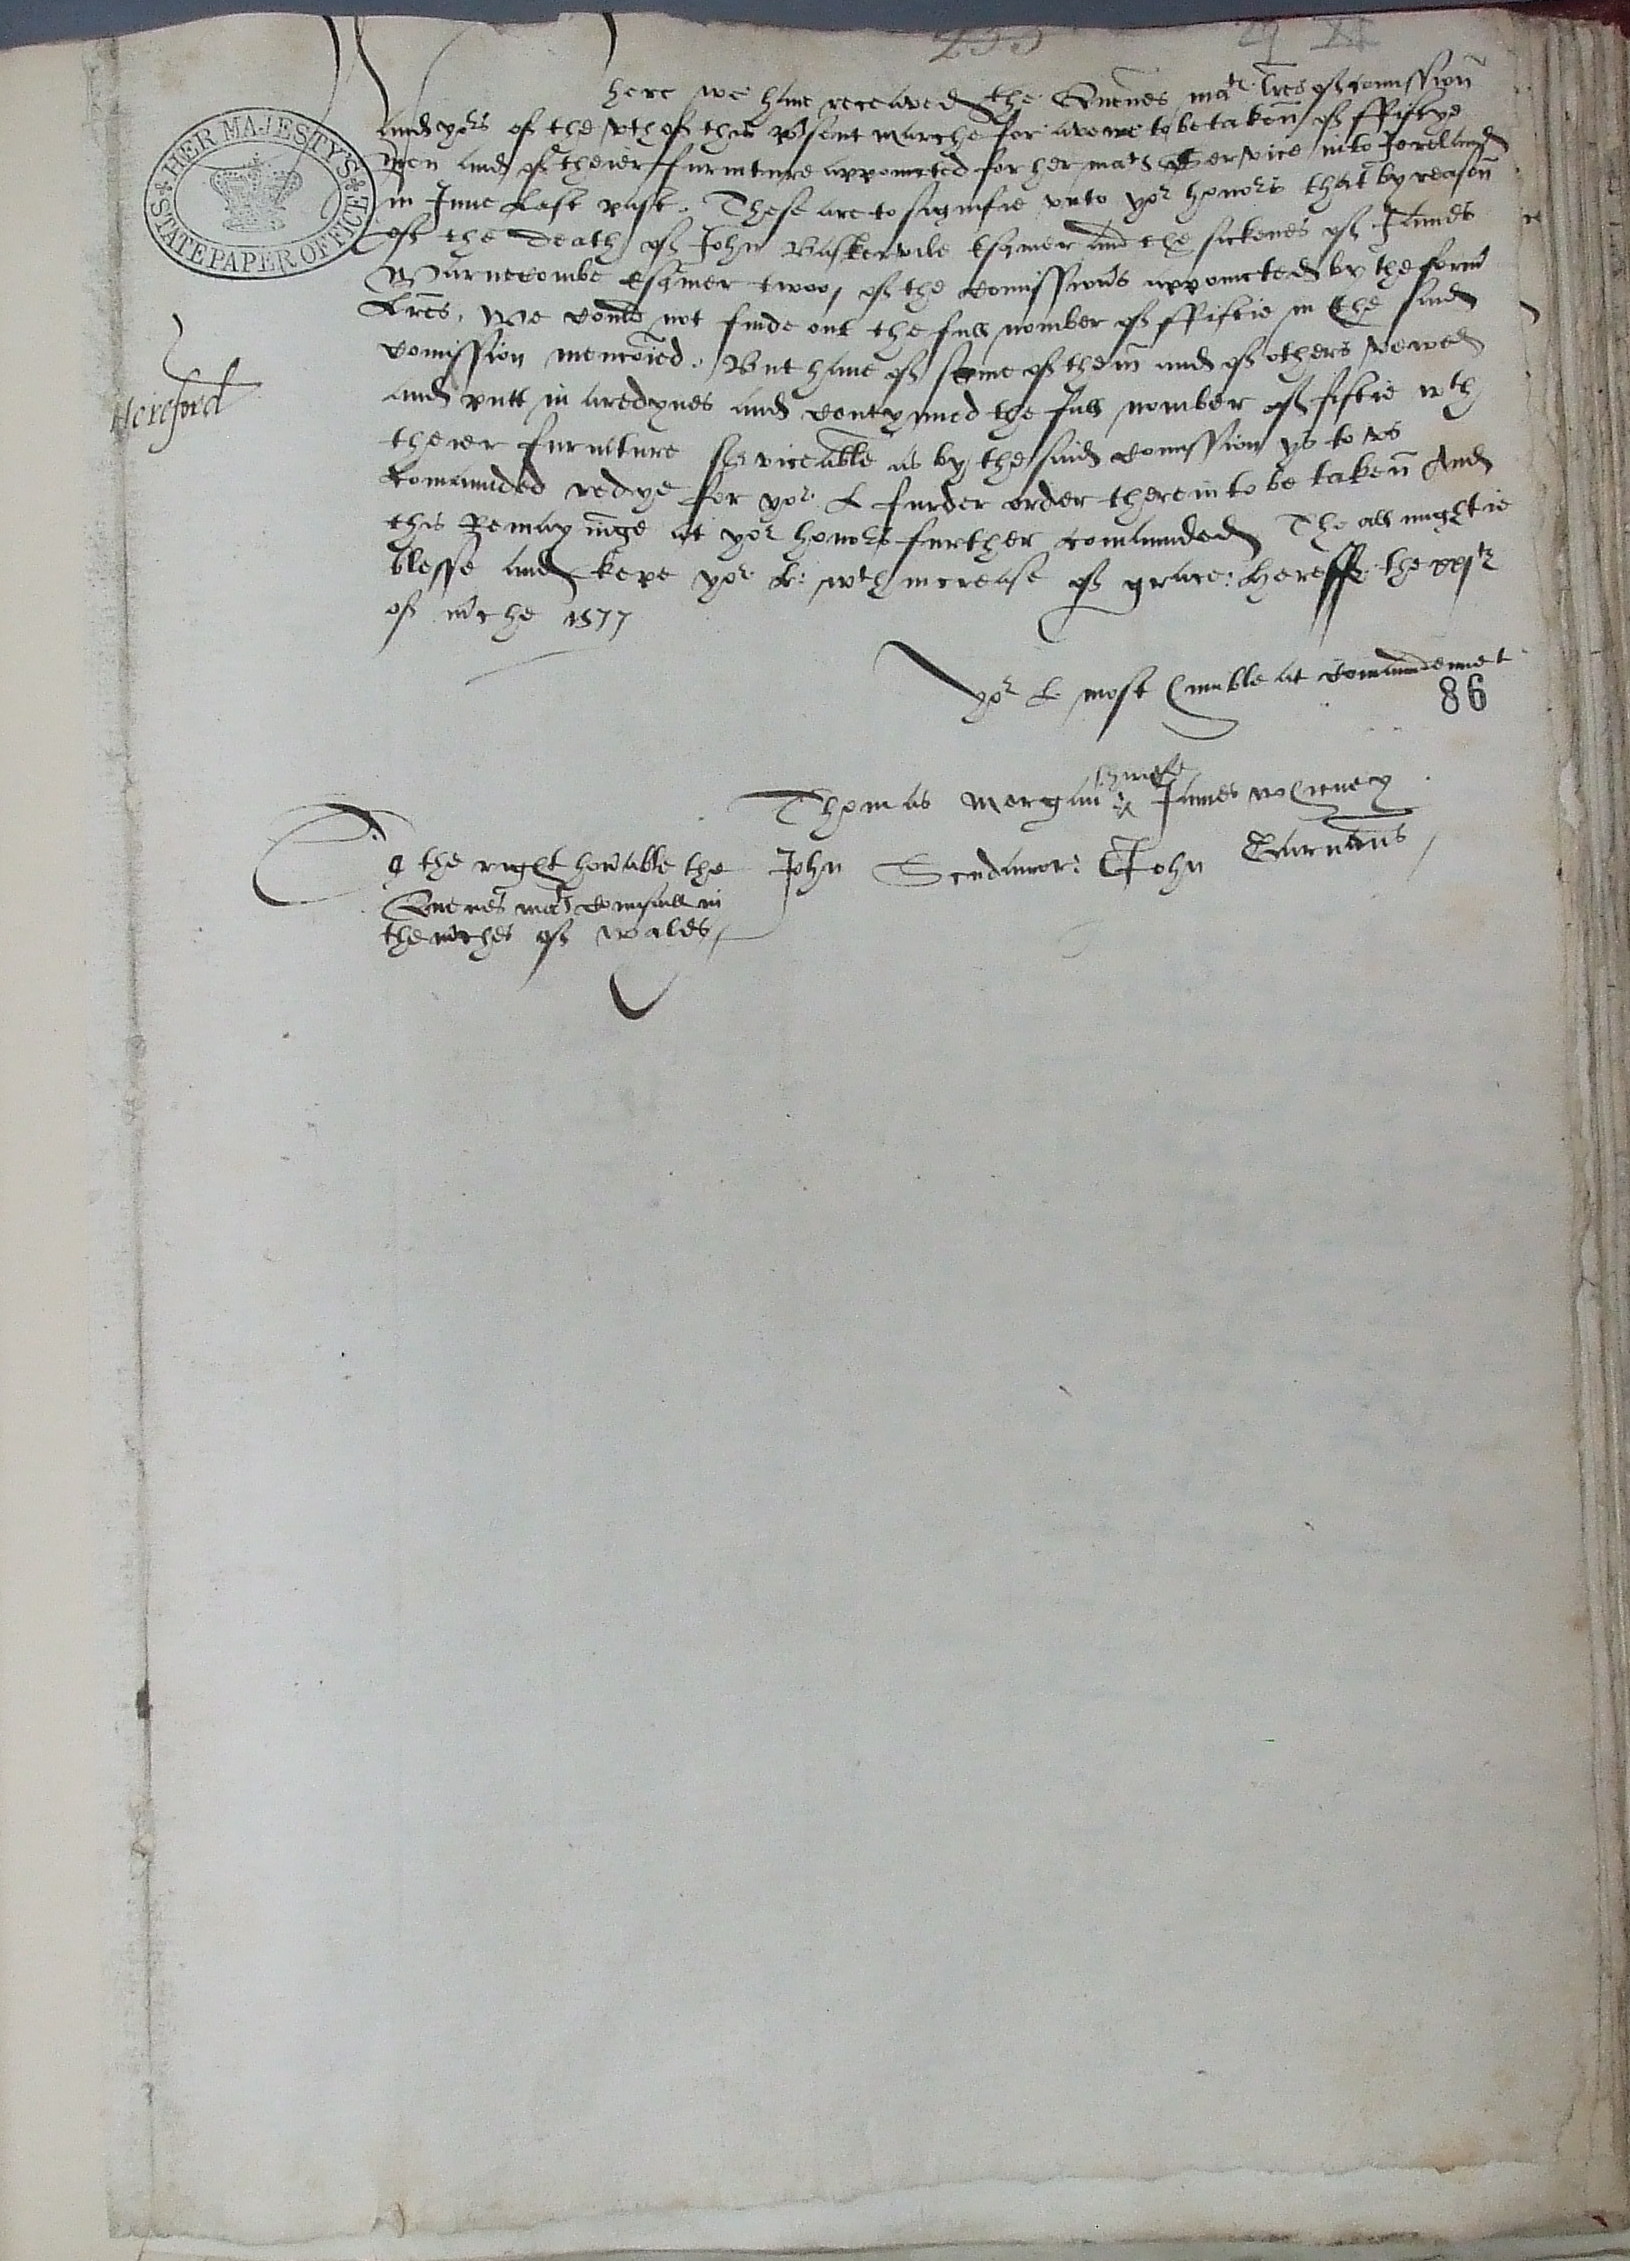 255
HER MAJESTY'S
STATE PAPER OFFICE
Hereford
here we haue receaved the Quenes matꝭ lres of comission
and yors of the vth of this psent marche for a vewe to be taken of ffiftye
men and of theier furniture appoincted for her matꝭ Service into Ireland
in June Last past. These are to signifie vnto yor honors that by reason
of the death of John Baskervile esquier and the sickenes of James
Warnecombe esquier twoo, of the comissions appoincted by the form
Lres, We could not finde out the full nomber of ffiftie in the said
comission mencoied. But haue of some of them and of others vewed
and putt in aredynes and contynued the full nomber of fiftie wth
theier furniture serviceable as by the said comission ys to vs
comaunded redye for yor L furder order therein to be taken And
this Remayninge at yor honors further comaunded The allmightie
blesse and kepe yor L: wth increase of grace: hereff the xxjth
of mche 1577
yor L most humble at comaundemet
86
Thomas Morgan James Whitney
John Scudamor: John Carnabus
To the right honable the
Quenes matꝭ counsall in
the mches of Wales,